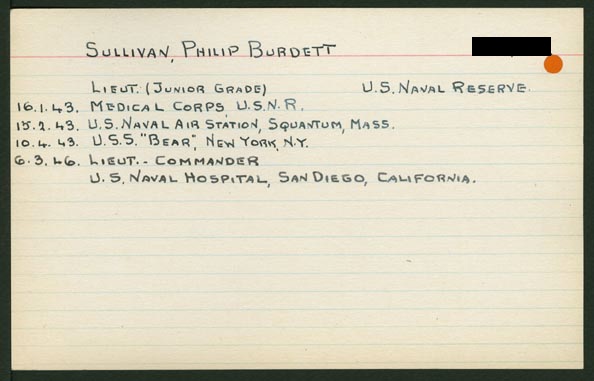 SULLIVAN, PHILIP BURDETT
LIEUT. (JUNIOR GRADE) U.S. NAVAL RESERVE.
16.1.43. MEDICAL CORPS U.S.N.R.
15.2.43. U.S. NAVAL AIR STATION, SQUANTUM, MASS.
10.4.43. U.S.S. "BEAR", NEW YORK, N.Y.
6.3.46. LIEUT.- COMMANDER
U.S. NAVAL HOSPITAL, SAN DIEGO, CALIFORNIA.